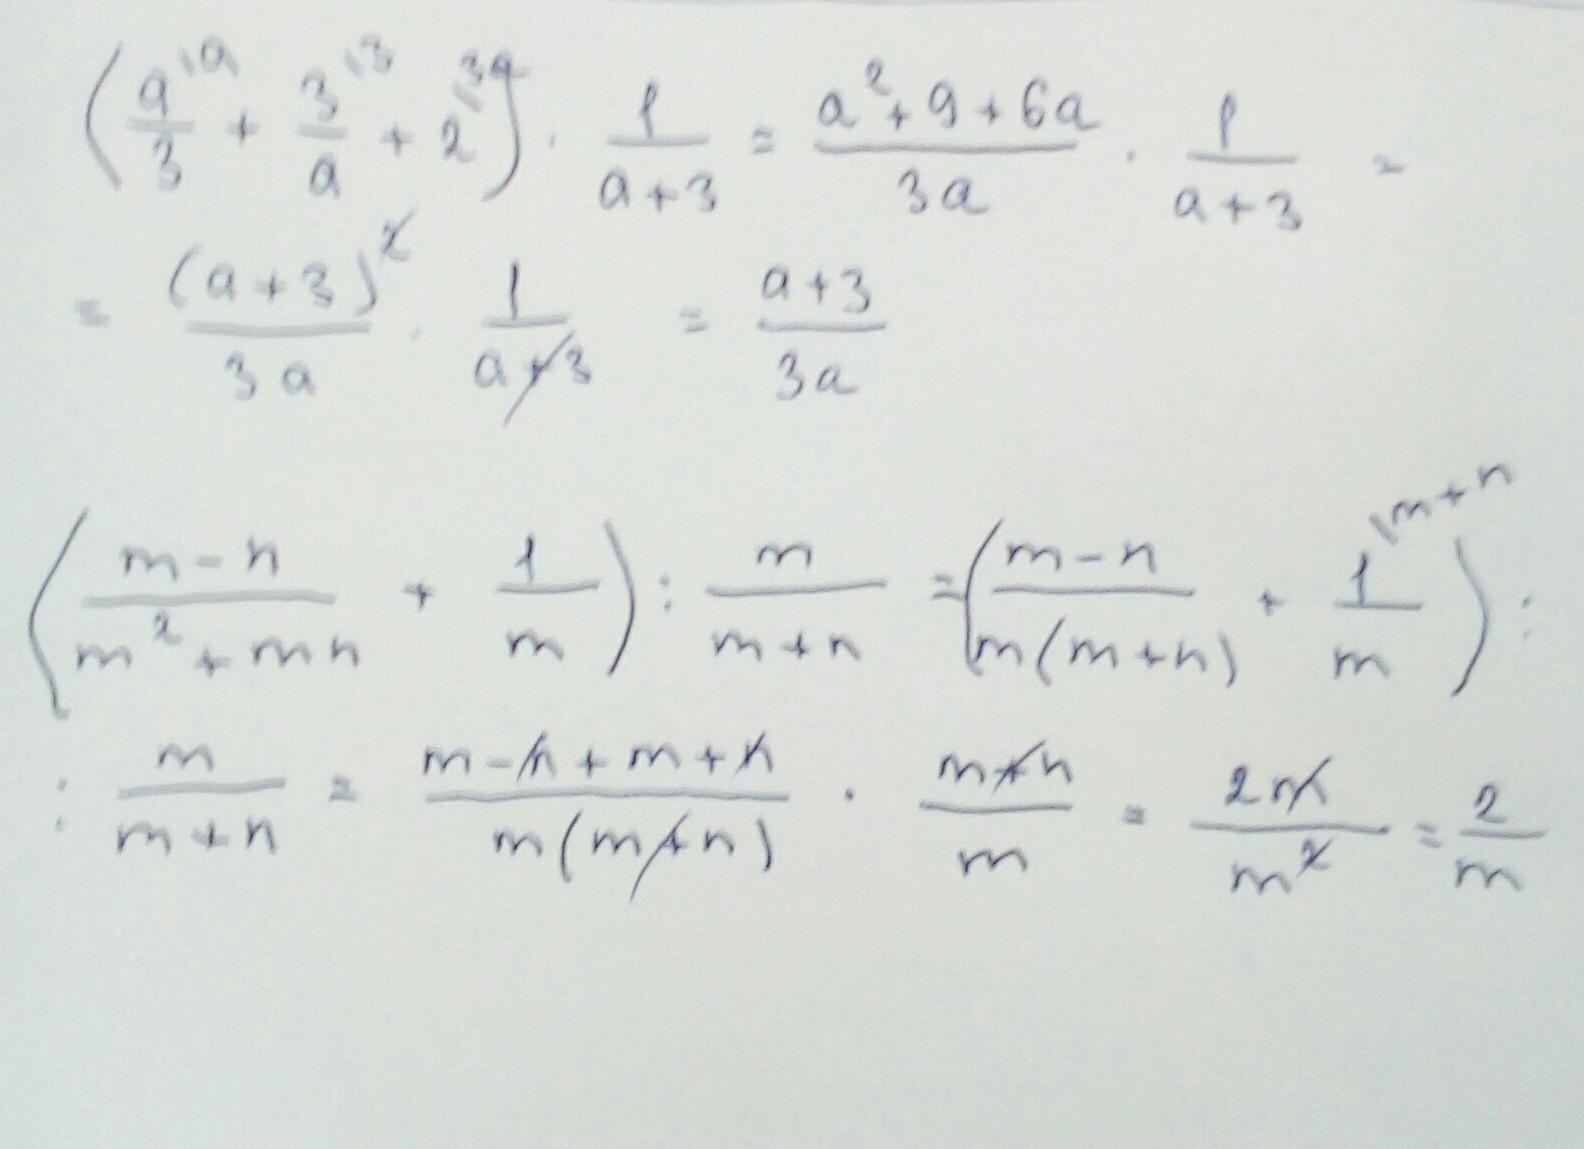 (a/3^{\a} + 3/a^{\3} + 2^{\3a}) · 1/(a+3) = (a²+9+6a)/(3a) · 1/(a+3) =
= (a+3)²/(3a) · 1/(a+3) = (a+3)/(3a)
((m-n)/(m²+mn) + 1/m) : m/(m+n) = ((m-n)/(m(m+n)) + 1/m^{\m+n}) :
: m/(m+n) = (m-n+m+n)/(m(m+n)) · (m+n)/m = 2m/m² = 2/m